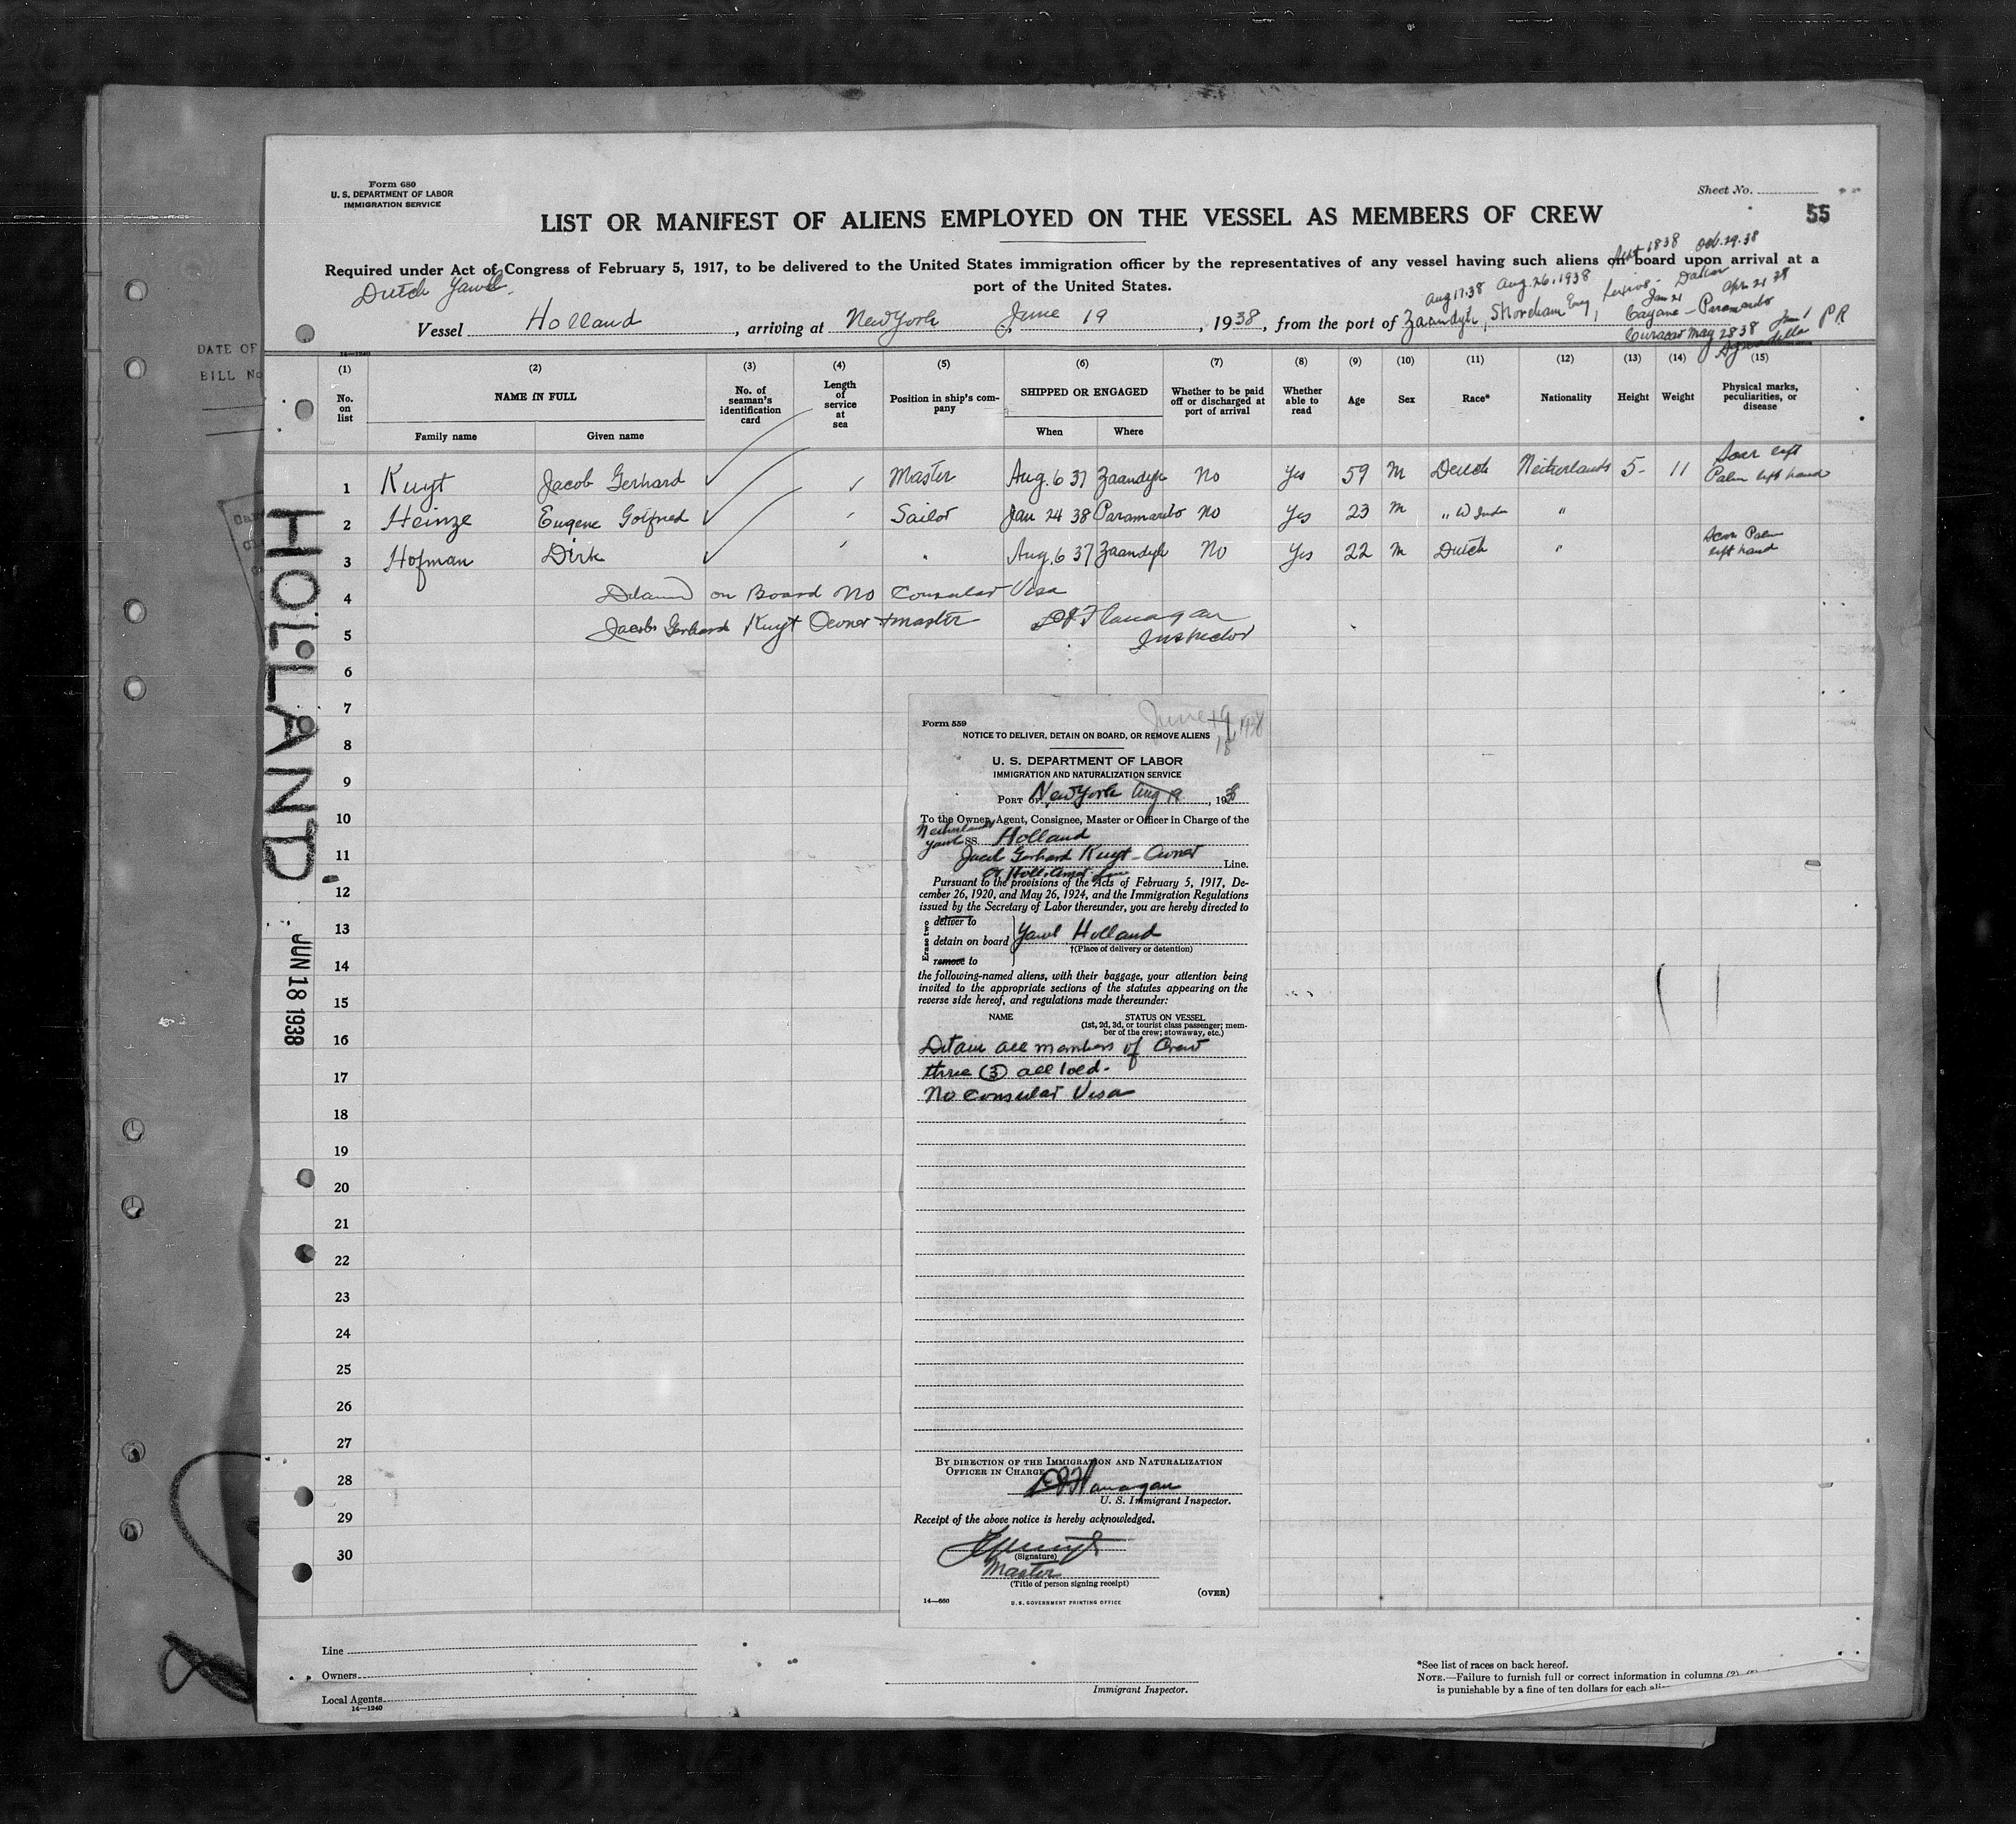 Form 680
U. S. DEPARTMENT OF LABOR
IMMIGRATION SERVICE
Sheet No.
55
LIST OR MANIFEST OF ALIENS EMPLOYED ON THE VESSEL AS MEMBERS OF CREW
Required under Act of Congress of February 5, 1917, to be delivered to the United States immigration officer by the representatives of any vessel having such aliens on board upon arrival at a
port of the United States.
Dutch Yawl
Sept 18 38 Oct. 29. 38
Aug 17. 38 Aug. 26, 1938 Dakar
Jan 21 Apr 21 38
Vessel Holland, arriving at New York June 19, 1938, from the port of Zaandyk, Shoreham Eng,
Cayane - Paramaribo
Curacao May 28 38 June 1 PR
14—1240
(1) (2) (3) (4) (5) (6) (7) (8) (9) (10) (11) (12) (13) (14) (15)
No. on list
NAME IN FULL
Family name Given name
No. of seaman's identification card
Length of service at sea
Position in ship's company
SHIPPED OR ENGAGED
When Where
Whether to be paid off or discharged at port of arrival
Whether able to read
Age
Sex
Race*
Nationality
Height
Weight
Physical marks, peculiarities, or disease
1 Kuyt Jacob Gerhard Master Aug. 6 37 Zaandyk No Yes 59 M Dutch Netherlands 5- 11 Scar left Palm left hand
2 Heinze Eugene Gotfried Sailor Jan 24 38 Paramaribo No Yes 23 M " W Indn "
3 Hofman Dirk " Aug. 6 37 Zaandyk No Yes 22 M Dutch " Scar Palm left hand
4 Detained on Board No Consular Visa
5 Jacob Gerhard Kuyt Owner + master Flanagan
Inspector
6
7
8
9
10
11
12
13
14
15
16
17
18
19
20
21
22
23
24
25
26
27
28
29
30
HOLLAND
JUN 18 1938
DATE OF
BILL No
Form 559
June 19 1938
18
NOTICE TO DELIVER, DETAIN ON BOARD, OR REMOVE ALIENS
U. S. DEPARTMENT OF LABOR
IMMIGRATION AND NATURALIZATION SERVICE
PORT OF New York Aug 19, 1938
To the Owner, Agent, Consignee, Master or Officer in Charge of the
Netherlands
Yawl SS. Holland
Jacob Gerhard Kuyt - Owner Line.
Pursuant to the provisions of the Acts of February 5, 1917, De-
cember 26, 1920, and May 26, 1924, and the Immigration Regulations
issued by the Secretary of Labor thereunder, you are hereby directed to
Erase two
deliver to
detain on board Yawl Holland
†(Place of delivery or detention)
remove to
the following-named aliens, with their baggage, your attention being
invited to the appropriate sections of the statutes appearing on the
reverse side hereof, and regulations made thereunder:
NAME STATUS ON VESSEL
(1st, 2d, 3d, or tourist class passenger; mem-
ber of the crew; stowaway, etc.)
Detain all members of Crew
three (3) all told.
No Consular Visa
BY DIRECTION OF THE IMMIGRATION AND NATURALIZATION
OFFICER IN CHARGE
Flanagan
U. S. Immigrant Inspector.
Receipt of the above notice is hereby acknowledged.
(Signature)
Master
(Title of person signing receipt)
(OVER)
14—660 U. S. GOVERNMENT PRINTING OFFICE
Line
Owners
Local Agents
14—1240
Immigrant Inspector.
*See list of races on back hereof.
NOTE.—Failure to furnish full or correct information in columns (2)
is punishable by a fine of ten dollars for each